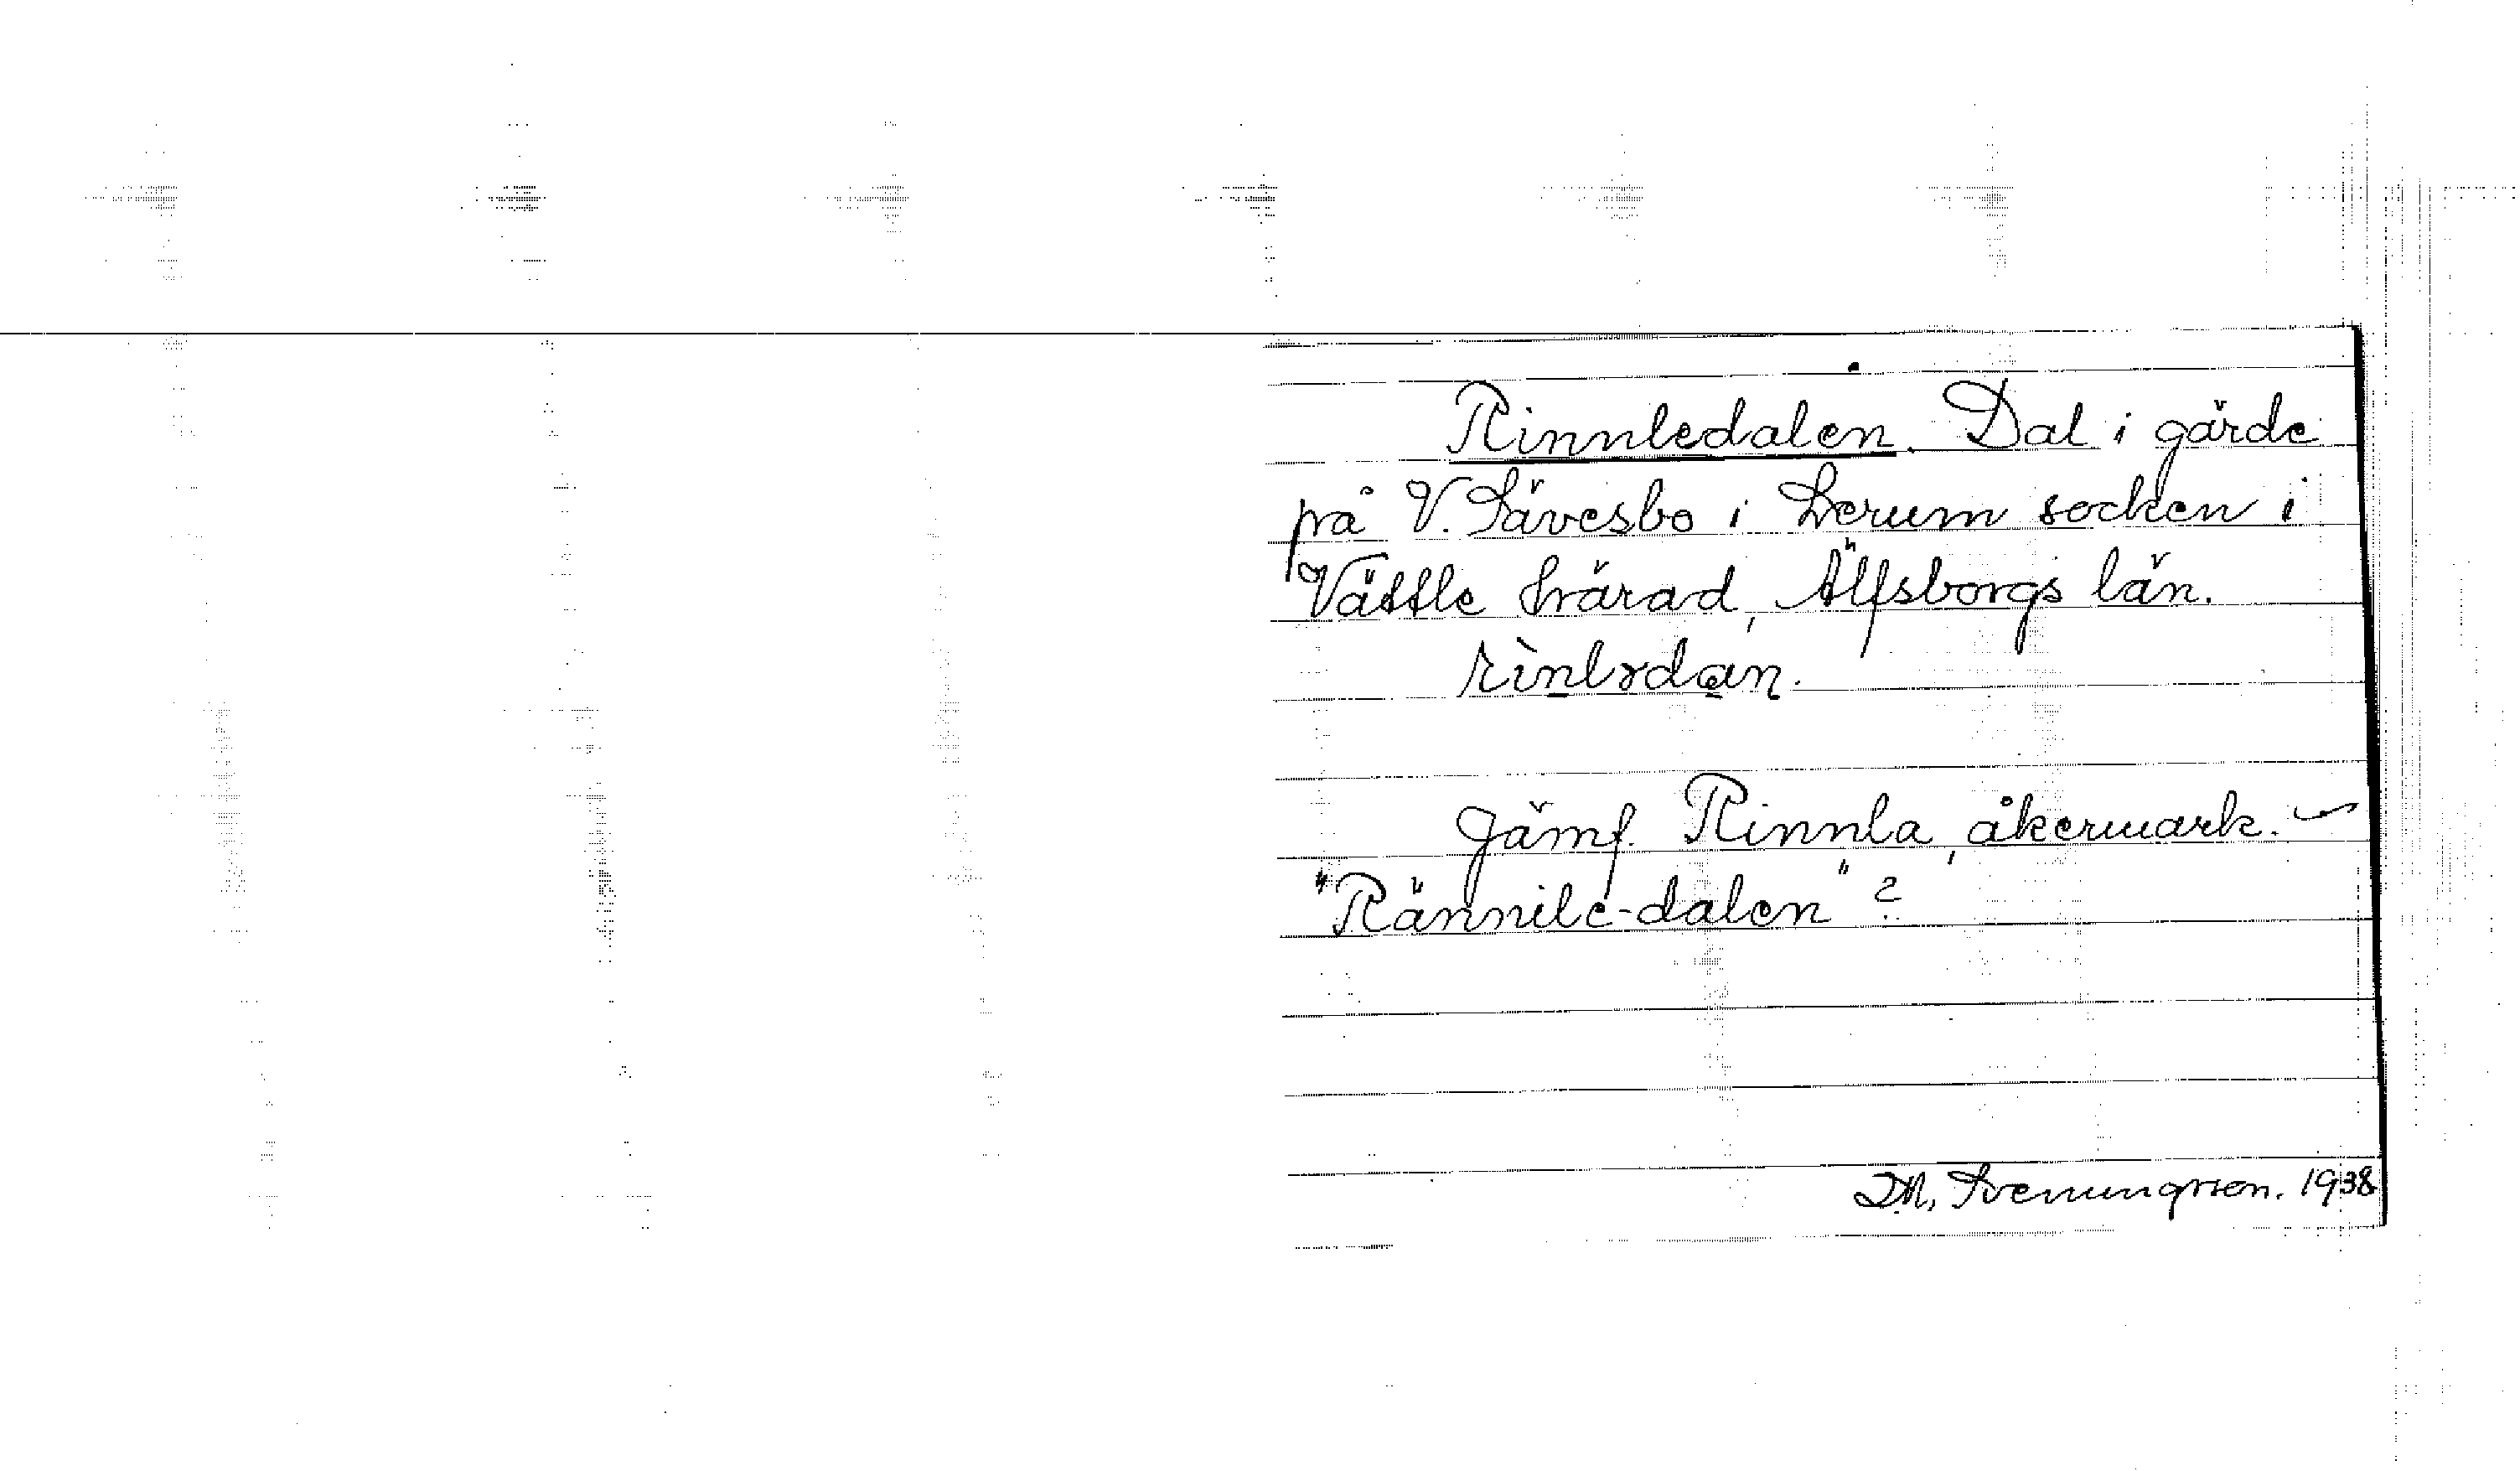 Rinnledalen. Dal i gärde
på V. Sävesbo i Lerum socken i
Vättle härad, Älfsborgs län.
Jämf. Rinnla, åkermark. –
"Rännile-dalen" ?
Th. Sveningsson. 1938